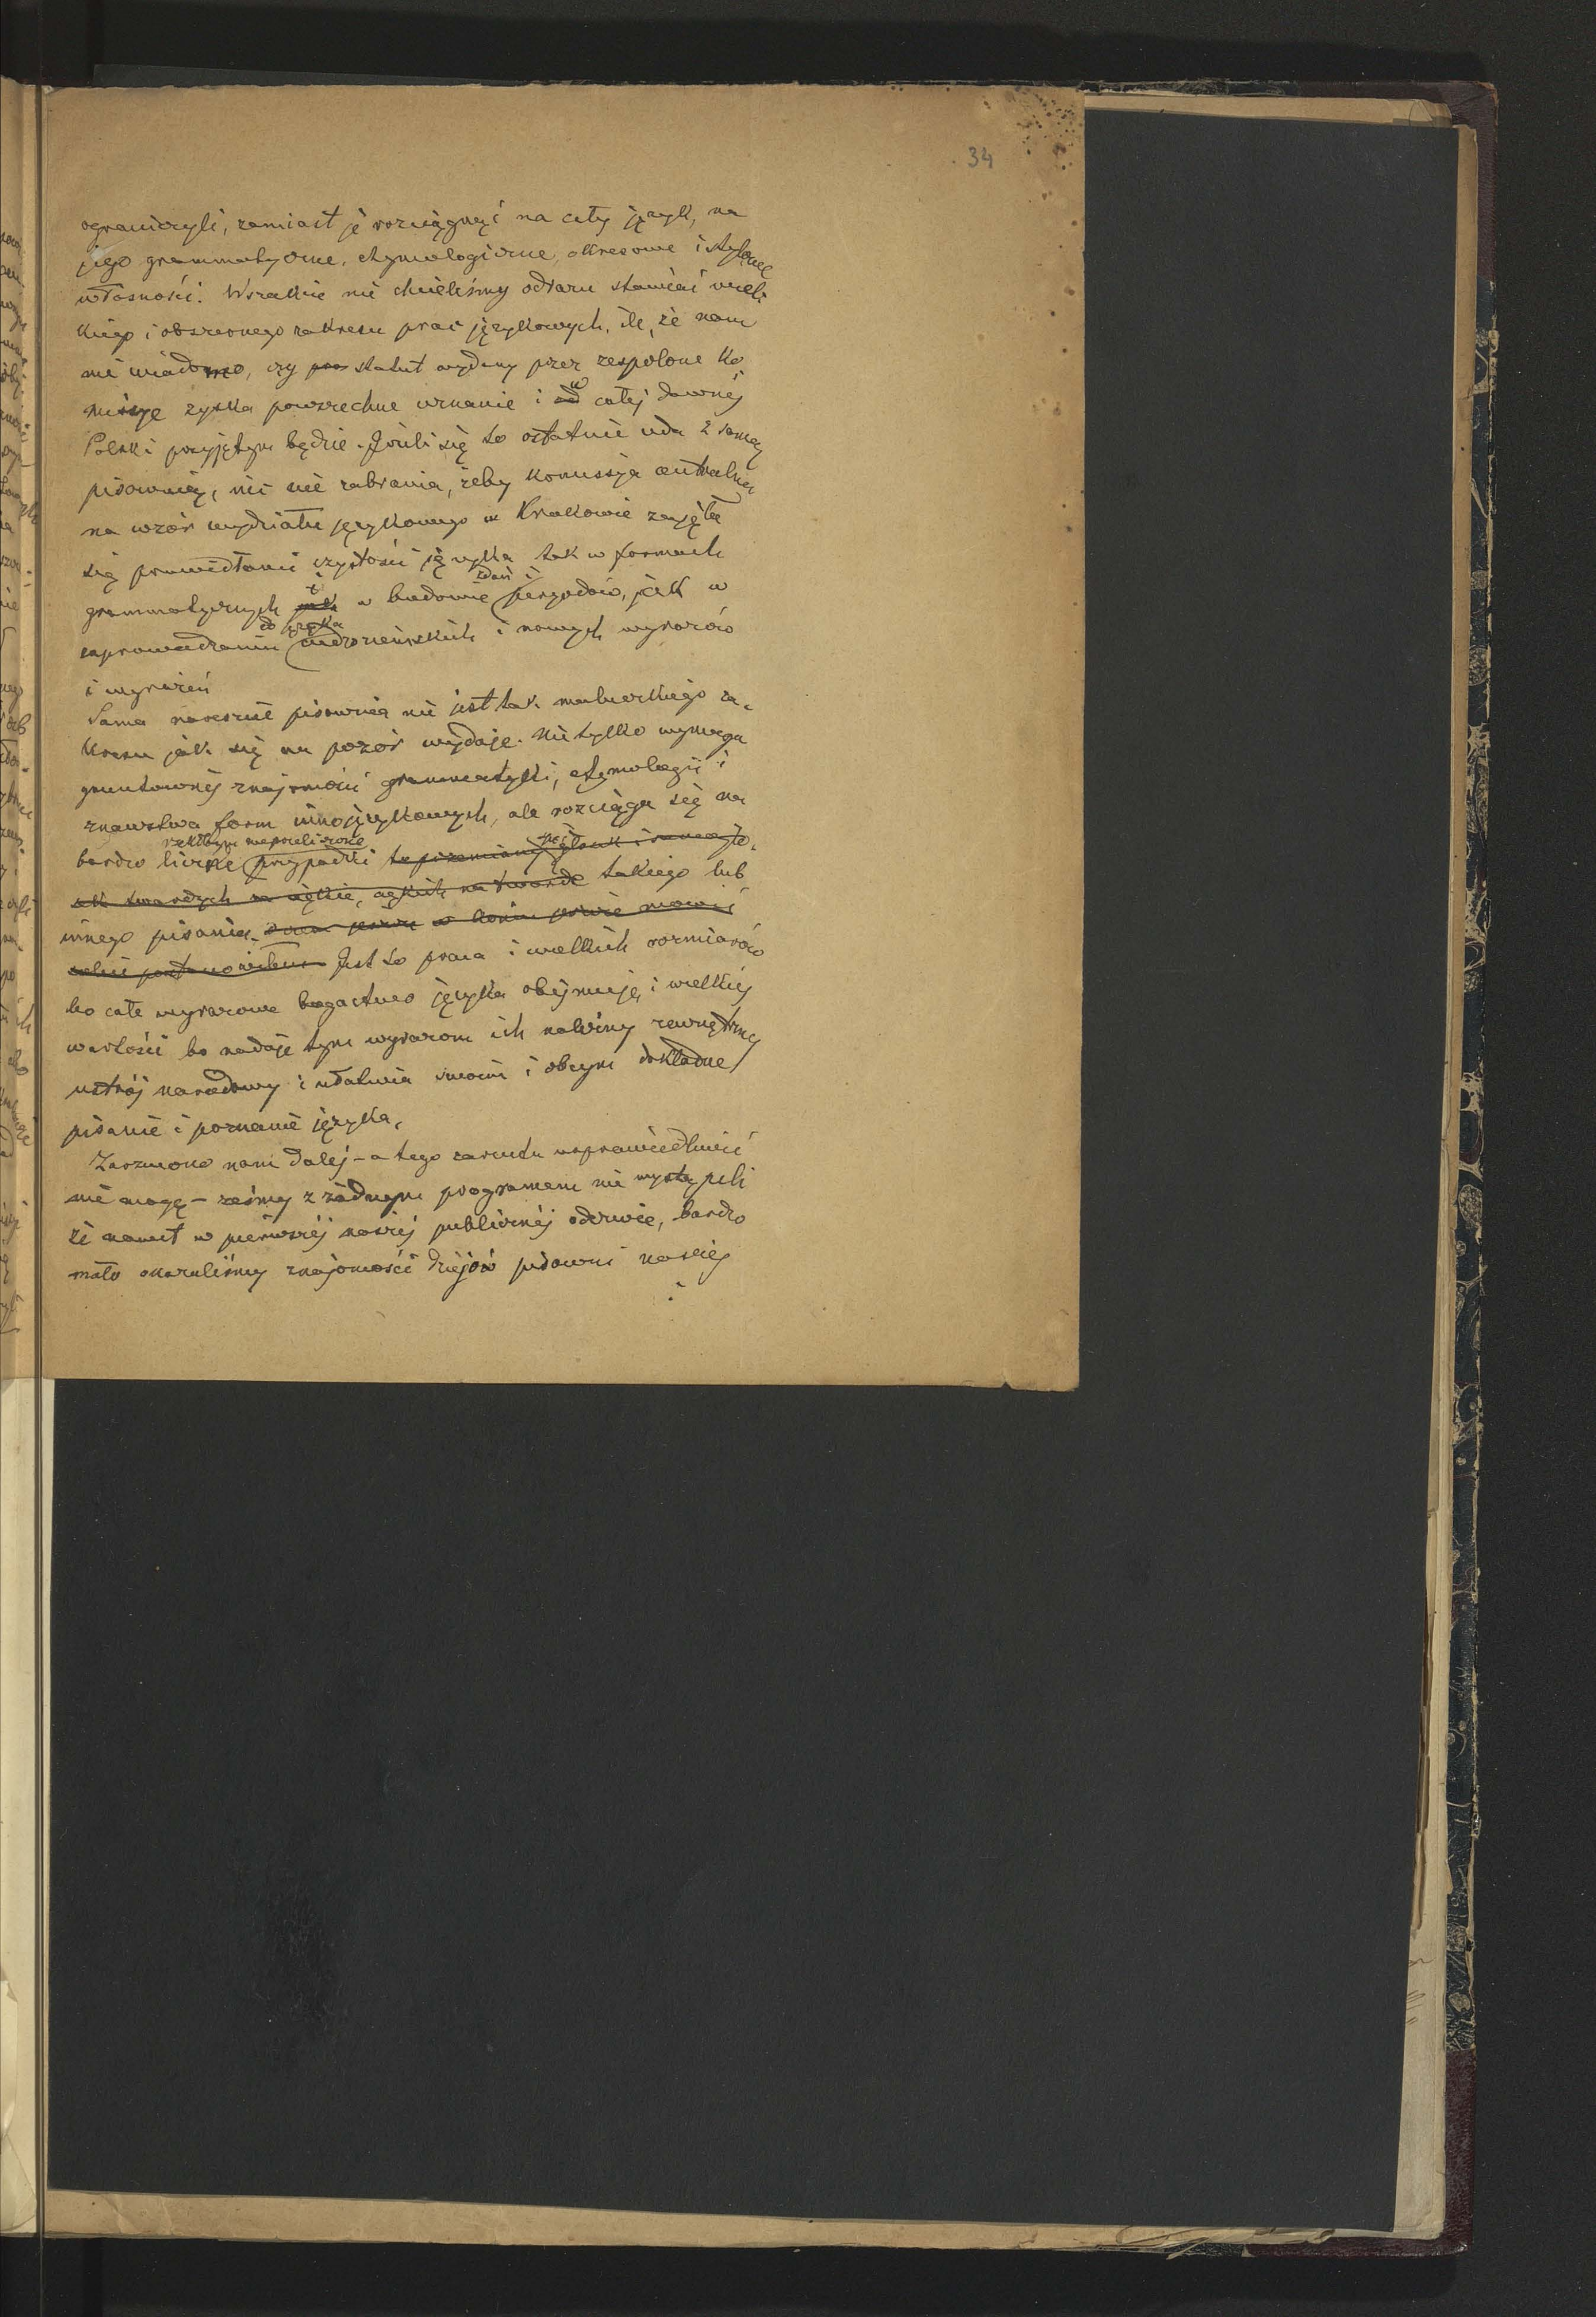 34
ograniczyli, zamiast je rozciągnąć na cały język, na
jego grammatyczne, etymologiczne, okresowe i stylowe
własności. Wszakże nie chcieliśmy odrazu stawiać wiel-
kiego i obszernego zakresu prac językowych, ile, że nam
nie wiadomo, czy statut wydany przez zespolone Ko
misye zyska powszechne uznanie i w całej dawnéj
Polski przyjętym będzie. Jeśli się to ostatnie uda z samą
pisownią, nic nie zabrania, żeby komissja centralna
na wzór wydziału językowego w Krakowie zajęła
się prawidłami czystości języka tak w formach
zdań i
grammatycznych i w budowie peryodów, jak w
do języka
zaprowadzaniu cudzoziemskich i nowych wyrazów
i wyrażeń
Sama nareszcie pisownia nie jest tak maluczkiego za-
kresu jak się na pozór wydaje. Nie tylko wymaga
gruntownéj znajomości grammatyki, etymologii i
znawstwa form innojęzykowych, ale rozciąga się na
rzekłbym niepoliczone
bardzo liczne przypadki
twardych na miękkie, na twarde takiego lub
innego pisania.
Jest to praca i wielkich rozmiarów
bo całe wyrazowe bogactwo języka obejmuje, i wielkiéj
wartości bo nadaje tym wyrazom ich zewnętrzny
ustrój narodowy i ułatwia swoim i obcym dokładne
pisanie i poznanie języka.
Zarzucono nam daléj - a tego zarzutu usprawiedliwić
nie mogę - żeśmy z żadnym programem nie wystąpili
że nawet w pierwszéj naszéj publicznéj odezwie, bardzo
mało okazaliśmy znajomości dziejów pisowni naszéj